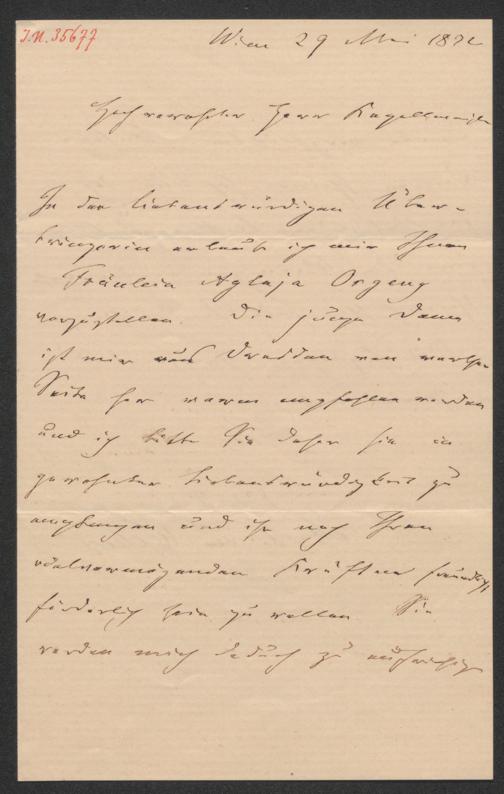 I.N. 35677
Wien 29 Mai 1872
Hochverehrter Herr Kapellmeister
In der liebenswürdigen Über-
bringerin erlaube ich mir Ihnen
Fräulein Aglaja Orgeny
vorzustellen. Die junge Dame
ist mir aus Dresden von werther
Seite her warm empfohlen worden
und ich bitte Sie daher sie in
gewohnter Liebenswürdigkeit zu
empfangen und ihr nach Ihren
vielvermögenden Kräften freundlichst
förderlich sein zu wollen Sie
werden mich dadurch zu aufrichtig